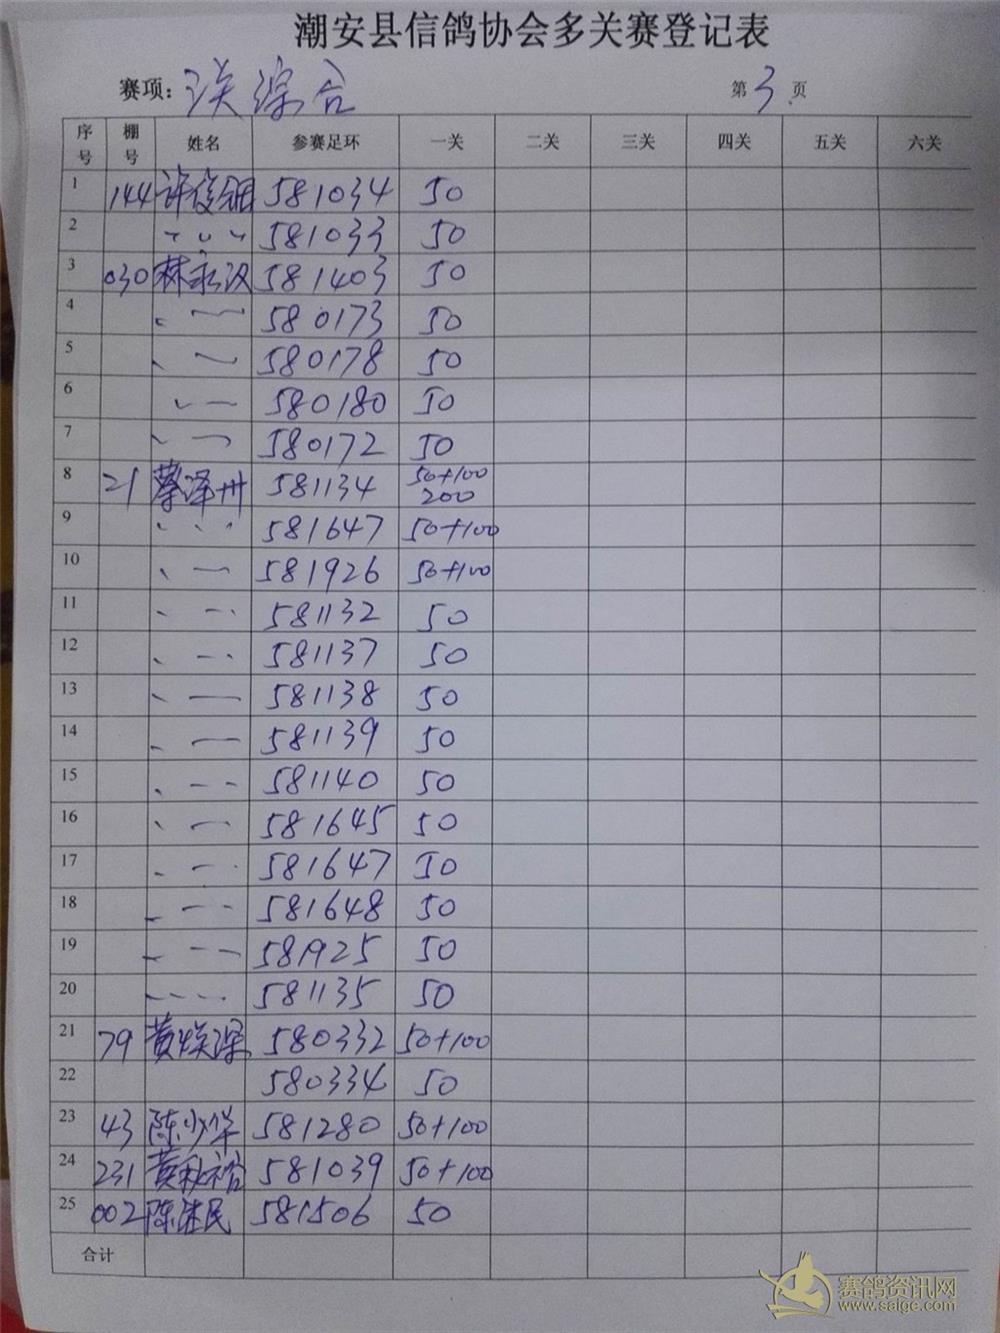 潮安县信鸽协会多关赛登记表
赛项: 综合 第3页
序号 棚号 姓名 参赛足环 一关 二关 三关 四关 五关 六关
1 144 许俊 581034 50
2 581033 50
3 030 林永汉 581403 50
4 580173 50
5 580178 50
6 580180 50
7 580172 50
8 21 蔡泽州 581134 50+100 200
9 581647 50+100
10 581926 50+100
11 581132 50
12 581137 50
13 581138 50
14 581139 50
15 581140 50
16 581645 50
17 581647 50
18 581648 50
19 581925 50
20 581135 50
21 79 黄焕深 580332 50+100
22 580334 50
23 43 陈少华 581280 50+100
24 231 黄裕 581039 50+100
25 002 陈民 581506 50
合计
赛鸽资讯网
www.saige.com